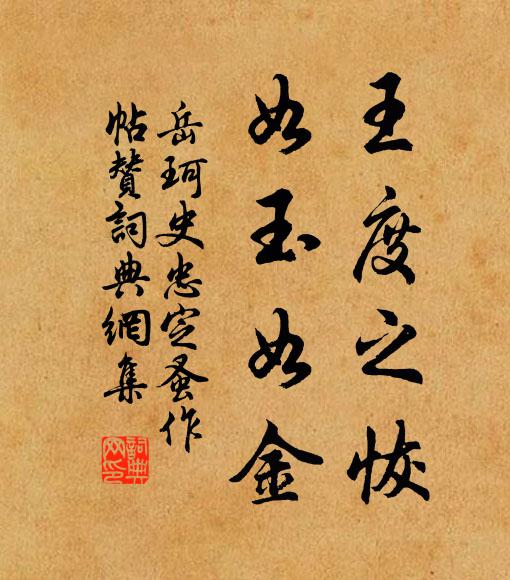 王度之恢
如玉如金
岳珂史忠定蚤作
帖贊詞典網集